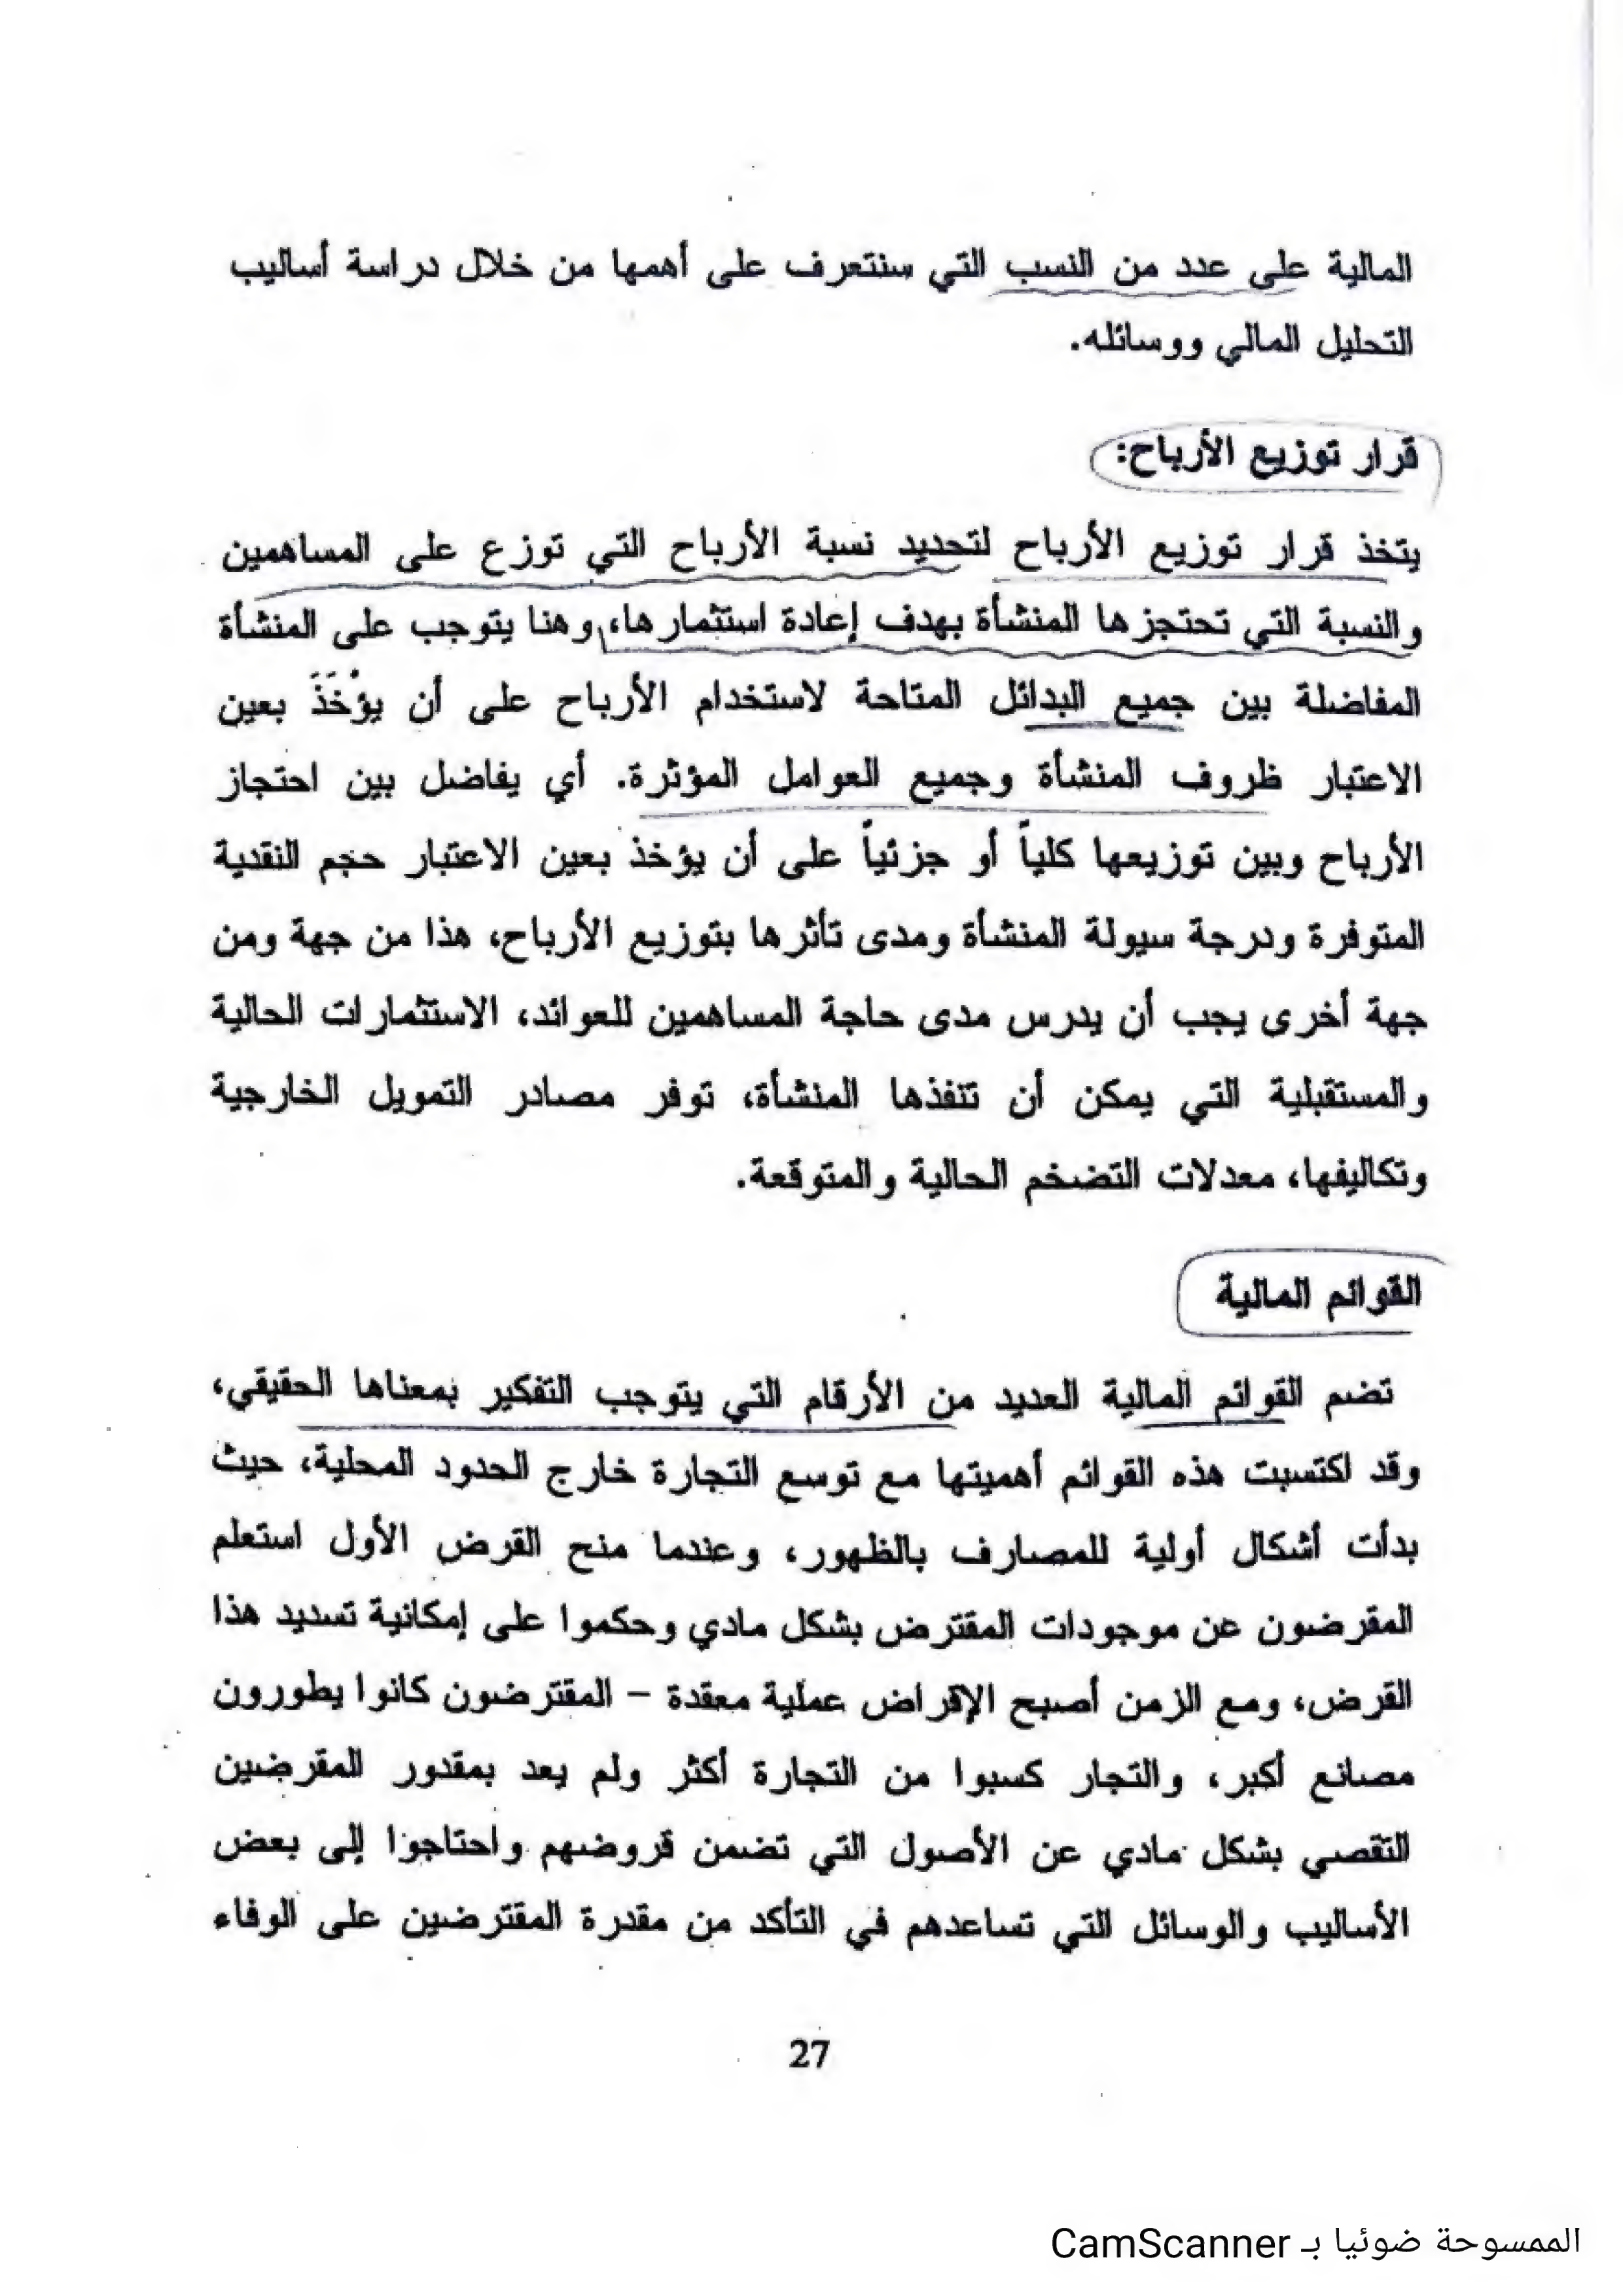 المالية على عدد من النسب التي سنتعرف على أهمها من خلال دراسة أساليب
التحليل المالي ووسائله.
قرار توزيع الأرباح:
يتخذ قرار توزيع الأرباح لتحديد نسبة الأرباح التي توزع على المساهمين
والنسبة التي تحتجزها المنشأة بهدف إعادة استثمارها، وهنا يتوجب على المنشأة
المفاضلة بين جميع البدائل المتاحة لاستخدام الأرباح على أن يُؤْخَذَ بعين
الاعتبار ظروف المنشأة وجميع العوامل المؤثرة. أي يفاضل بين احتجاز
الأرباح وبين توزيعها كلياً أو جزئياً على أن يؤخذ بعين الاعتبار حجم النقدية
المتوفرة ودرجة سيولة المنشأة ومدى تأثرها بتوزيع الأرباح، هذا من جهة ومن
جهة أخرى يجب أن يدرس مدى حاجة المساهمين للعوائد، الاستثمارات الحالية
والمستقبلية التي يمكن أن تنفذها المنشأة، توفر مصادر التمويل الخارجية
وتكاليفها، معدلات التضخم الحالية والمتوقعة.
القوائم المالية
تضم القوائم المالية العديد من الأرقام التي يتوجب التفكير بمعناها الحقيقي،
وقد اكتسبت هذه القوائم أهميتها مع توسع التجارة خارج الحدود المحلية، حيث
بدأت أشكال أولية للمصارف بالظهور، وعندما منح القرض الأول استعلم
المقرضون عن موجودات المقترض بشكل مادي وحكموا على إمكانية تسديد هذا
القرض، ومع الزمن أصبح الإقراض عملية معقدة – المقترضون كانوا يطورون
مصانع أكبر، والتجار كسبوا من التجارة أكثر ولم يعد بمقدور المقرضين
التقصي بشكل مادي عن الأصول التي تضمن قروضهم واحتاجوا إلى بعض
الأساليب والوسائل التي تساعدهم في التأكد من مقدرة المقترضين على الوفاء
27
الممسوحة ضوئيا بـ CamScanner